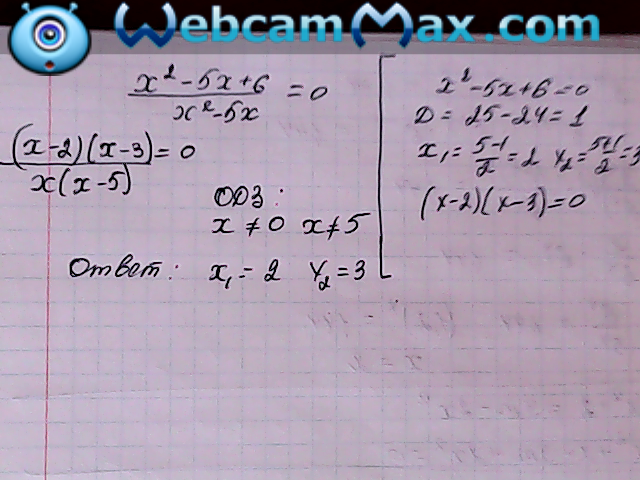 WebcamMax.com
x² - 5x + 6 / x² - 5x = 0
(x - 2)(x - 3) / x(x - 5) = 0
ОДЗ:
x ≠ 0 x ≠ 5
Ответ: x₁ = 2 x₂ = 3
x² - 5x + 6 = 0
D = 25 - 24 = 1
x₁ = 5-1 / 2 = 2 x₂ = 5+1 / 2 = 3
(x - 2)(x - 3) = 0